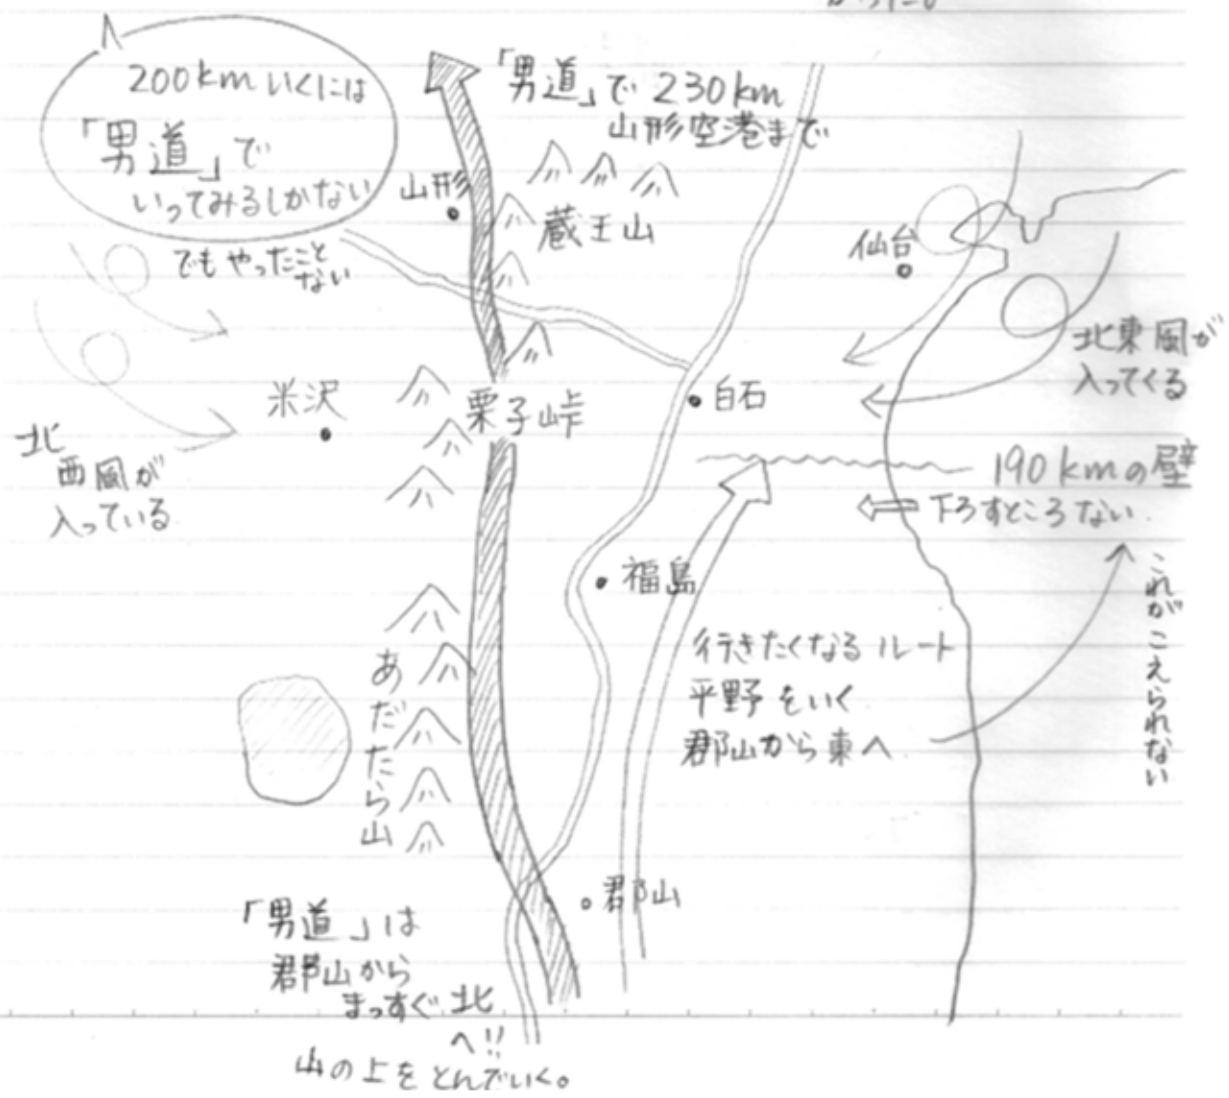 200kmいくには
「男道」で
いってみるしかない
でもやったこと
ない
「男道」で 230km
山形空港まで
山形
蔵王山
仙台
北東風が
入ってくる
米沢
栗子峠
白石
北
西風が
入っている
190kmの壁
下ろすところない.
福島
これがこえられない
行きたくなるルート
平野をいく
郡山から東へ
あだたら山
郡山
「男道」は
郡山から
まっすぐ北
へ!!
山の上をとんでいく。